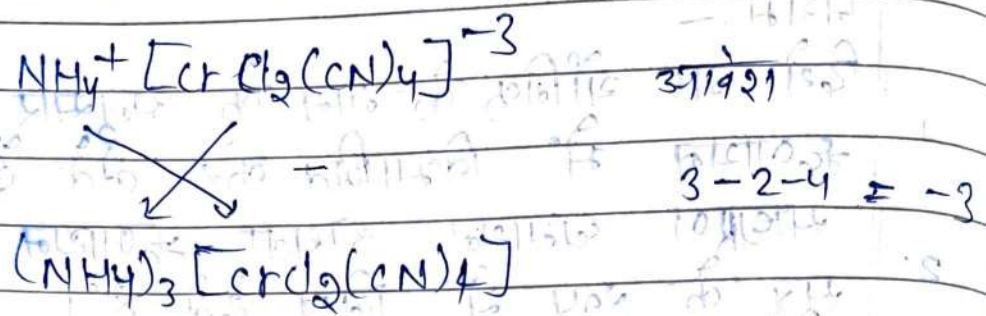 NH4+ [Cr Cl2(CN)4]-3 आवेश
3-2-4 = -3
(NH4)3 [CrCl2(CN)4]